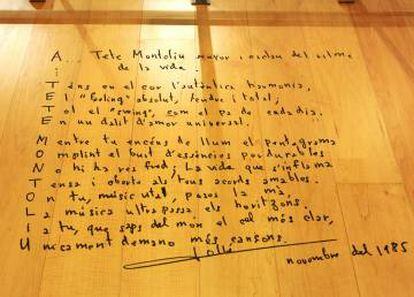 A... Tete Montoliu senyor i esclau del ritme
de la vida.
A...
Tens en el cor l'autèntica harmonia,
El "feeling" absolut, tendre i total,
Tot el "swing", com el pa de cada dia,
En un dalit d'amor universal.
Mentre tu encens de llum el pentagrama
Omplint el buit d'essències perdurables
No hi ha res fred; La vida que s'inflama
Tensa i oberta als teus acords amables.
On tu, músic vital, poses mà,
La música ultrapassa els horitzons.
I a tu, que saps del món el cel més clar,
Unicament demano més cansons.
novembre del 1985